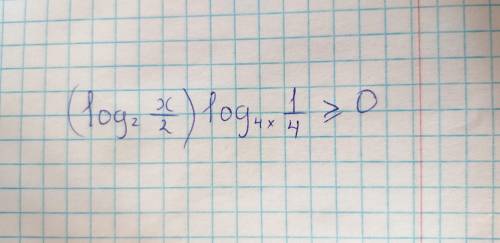 (log₂ x/2) log₄ₓ 1/4 ⩾ 0